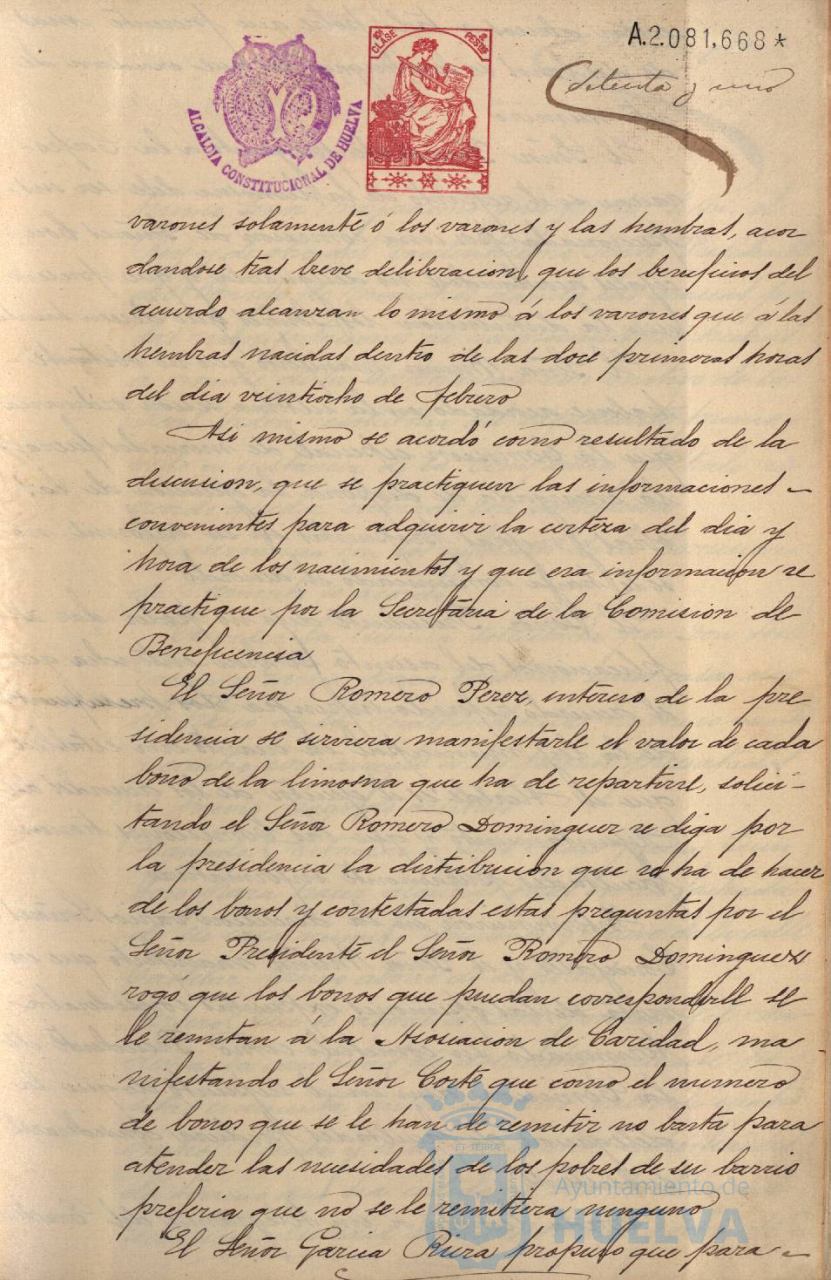 A.2.081,668*
Setenta y uno
10ª CLASE
PESETAS
ALCALDIA CONSTITUCIONAL DE HUELVA
varones solamente ó los varones y las hembras, acor
dandose tras breve deliberacion, que los beneficios del
acuerdo alcanzan lo mismo á los varones que á las
hembras nacidas dentro de las doce primeras horas
del dia veintiocho de febrero
Asi mismo se acordó como resultado de la
discusion, que se practiquen las informaciones -
convenientes para adquirir la certeza del dia y
hora de los nacimientos y que esa informacion se
practique por la Secretaria de la Comision de
Beneficencia
El Señor Romero Perez, interesó de la pre
sidencia se sirviera manifestarle el valor de cada
bono de la limosna que ha de repartirse, solici-
tando el Señor Romero Dominguez se diga por
la presidencia la distribucion que se ha de hacer
de los bonos y contestadas estas preguntas por el
Señor Presidente el Señor Romero Dominguez
rogó que los bonos que puedan corresponderle se
le remitan á la Asociacion de Caridad, ma
nifestando el Señor Corté que como el numero
de bonos que se le han de remitir no basta para
atender las necesidades de los pobres de su barrio
preferia que no se le remitiera ninguno
El Señor Garcia Riera propuso que para -
Ayuntamiento de
HUELVA